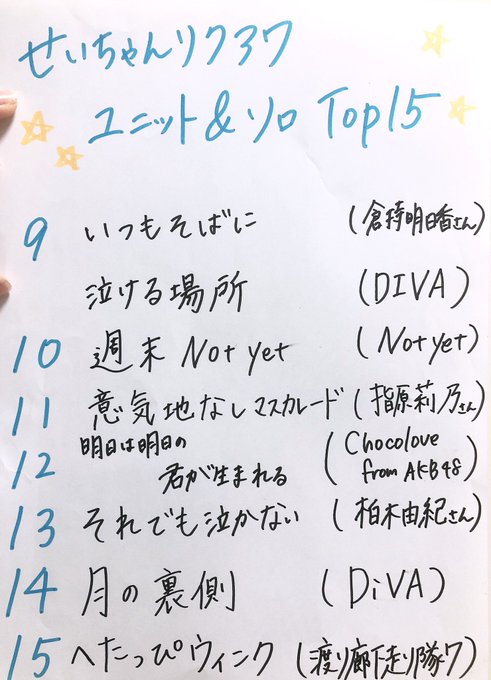 せいちゃんリク37
ユニット&ソロ Top15
9 いつもそばに (倉持明日香さん)
泣ける場所 (DIVA)
10 週末Not yet (Not yet)
11 意気地なしマスカレード (指原莉乃さん)
明日は明日の
12 君が生まれる (Chocolove from AKB48)
13 それでも泣かない (柏木由紀さん)
14 月の裏側 (DiVA)
15 へたっぴウィンク (渡り廊下走り隊7)